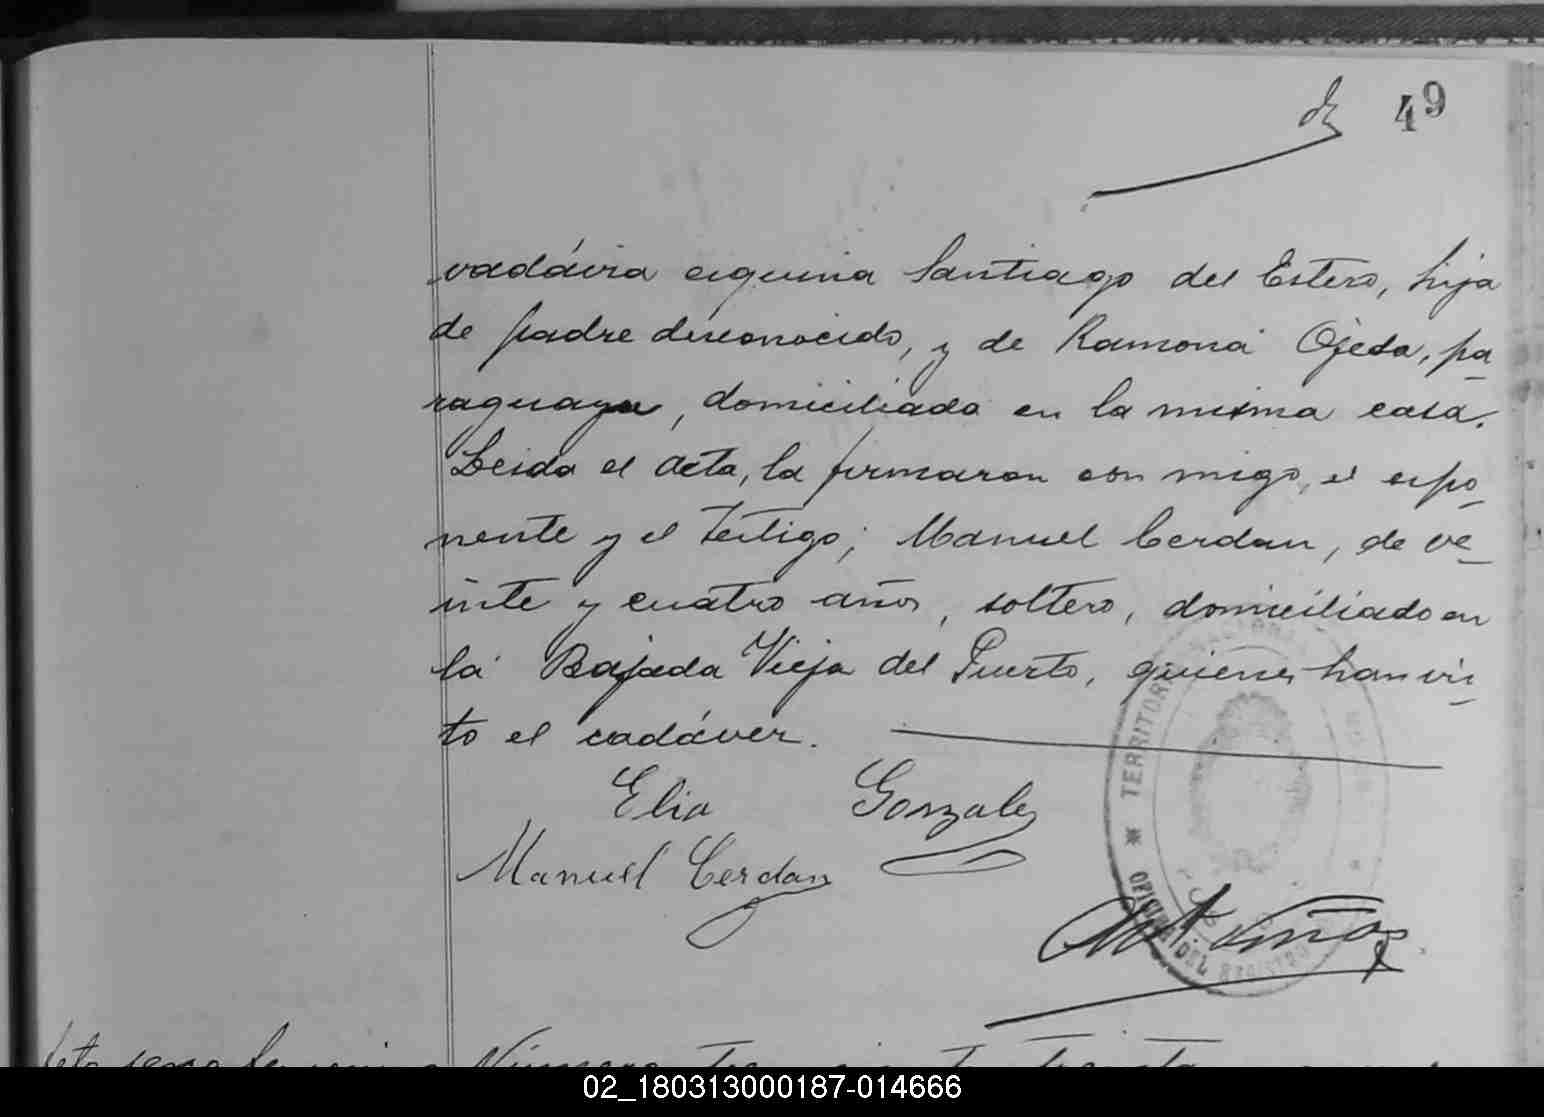 49
vadávia esquina Santiago del Estero, hija
de padre desconocido, y de Ramona Ojeda, pa_
raguaya, domiciliada en la misma casa.
Leida el acta, la firmaron con migo, el espo_
nente y el testigo; Manuel Cerdan, de ve_
inte y cuatro años, soltero, domiciliado en
la Bajada Vieja del Puerto, quienes han vis_
to el cadáver.
Elia Gonzalez
Manuel Cerdan
TERRITORIO NACIONAL
DEL REGISTRO
Número
02_180313000187-014666